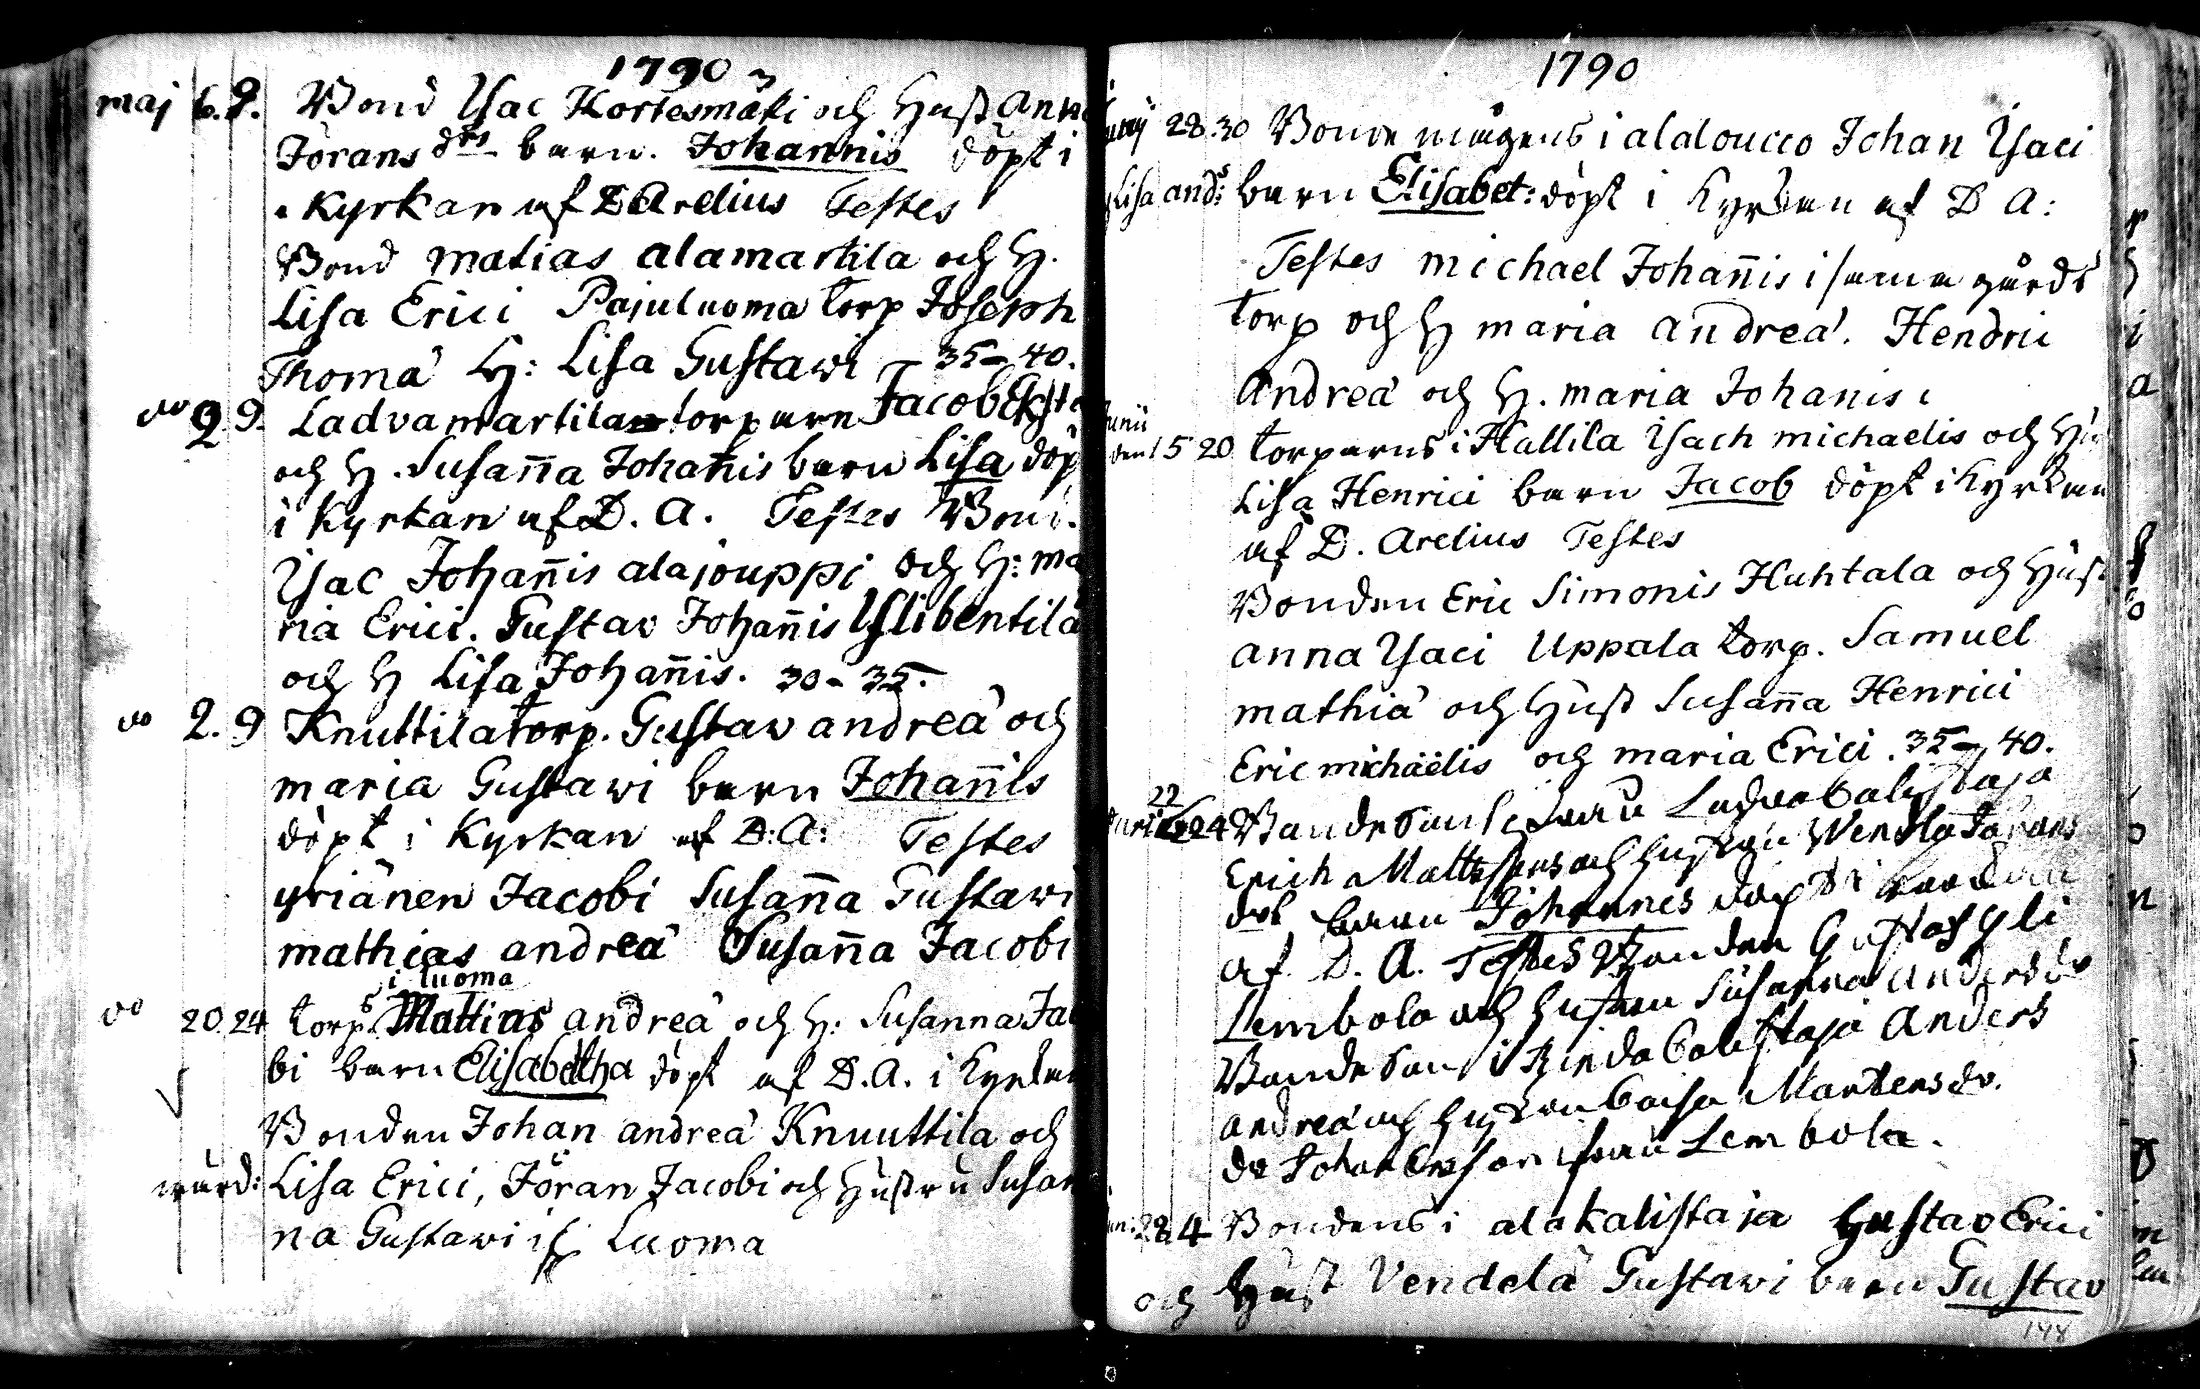 1790
maj 6. 9. Bond Isac Kortesmäki och Hust Anna
Jörans drs barn. Johannis döpt i
Kyrkan af D Arelius Testes
Bond Matias alamartila och H.
Lisa Erici Pajuluoma torp Joseph
Thomä H: Lisa Gustawi 35-40.
do 2 9. Ladvamartila torparn Jacob
och H. Susan̄a Johan̄is barn Lisa döp
i Kyrkan af D. A. Testes Bond.
Isac Johan̄is alajouppi och H: ma
ria Erici. Gustav Johan̄is Ylibentilä
och H Lisa Johan̄is. 30-35.
do 2. 9 Knuttila torp. Gustav andreä och
maria Gustawi barn Johan̄is
döpt i Kyrkan af D: A: Testes
yriänen Jacobi Susan̄a Gustawi
mathias andreä Susan̄a Jacobi
i luoma
do 20 24 torps Mattias andreä och H: Susanna Ja
bi barn Elisabetha döpt af D. A. i Kyrkan
Bonden Johan andreä Knuuttila och
Lisa Erici, Jöran Jacobi och Hustru Susan
na Gustawi Luoma
1790
28. 30 Bonde mågens i alaloucco Johan Isaci
Lisa ands: barn Elisabet: döpt i Kyrkan af D A:
Testes michael Johan̄is i sama gårds
torp och H maria andreä. Hendric
Andreä och H. maria Johanis
Junii
15 20 torparns i Hallila Isach michaelis och Hu
Lisa Henrici barn Jacob döpt i Kyrkan
af D. Arelius Testes
Bonden Eric Simonis Huhtala och Hust
anna Isaci Uppala torp. Samuel
mathiä och Hust Susan̄a Henrici
Eric michaëlis och maria Erici. 35-40.
22
24 Bandesans från Ladvakalistaja
Erich Mattssons och hustrun Wendla Jörans
dotr barn Johannes döpt i
af D. A. Testes Bonden Gustaf Yli
Lembola och hustrun Susanna Anders dr
Bandesan i Kalistaja Anders
andreä och hustrun Caisa Martensdr.
dr Johan Ersson från Lembola.
22. 4 Bondens i alakalistaja Gustav Erici
och Hust Vendelä Gustawi barn Gustav
148